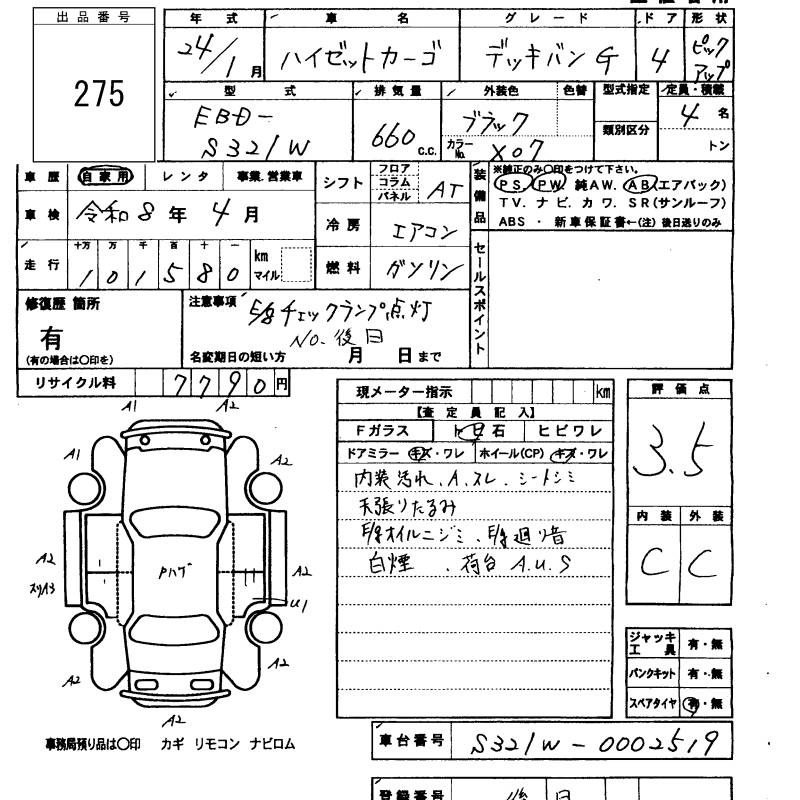 出品番号
275
年式 車名 グレード ドア 形状
24/1月 ハイゼットカーゴ デッキバン G 4 ピックアップ
型式 排気量 外装色 色替 型式指定 定員・積載
EBD-
S321W
660 c.c.
ブラック
カラーNo. X07
類別区分
4名
トン
車歴 自家用 レンタ 事業.営業車
車検 令和8年4月
走行 十万 万 千 百 十 一
101580 km マイル
シフト フロア コラム パネル AT
冷房 エアコン
燃料 ガソリン
装備品
※純正のみ〇印をつけて下さい。
PS. PW. 純AW. AB(エアバック)
TV. ナビ. カワ. SR(サンルーフ)
ABS ・ 新車保証書←(注) 後日送りのみ
セールスポイント
修復歴 箇所
有
(有の場合は〇印を)
注意事項 E/gチェックランプ点灯
No. 後日
名変期日の短い方 月 日まで
リサイクル料 7790円
現メーター指示 km
【査定員記入】
Fガラス トビ石 ヒビワレ
ドアミラー キズ・ワレ ホイール(CP) キズ・ワレ
内装汚れ、A、スレ、シートシミ
天張りたるみ
E/gオイルニジミ、E/g廻り音
白煙 、荷台 A.U.S
評価点
3.5
内装 外装
C C
A1 A2
A1 A2
A2 A2
スリA3
Pハゲ
U1
A2 A2
A2
ジャッキ工具 有・無
パンクキット 有・無
スペアタイヤ 有・無
事務局預り品は〇印 カギ リモコン ナビロム
車台番号 S321W-0002519
登録番号 後日